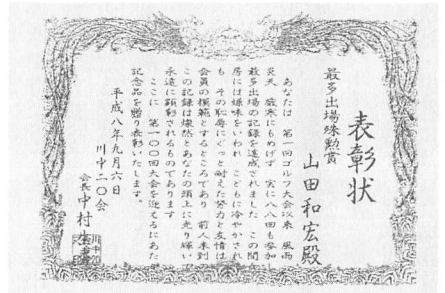 表彰状
最多出場殊勲賞
山田和宏殿
あなたは 第一回ゴルフ大会以来 風雨
炎天 厳寒にもめげず 実に八八回も参加し
最多出場の記録を達成されました この間
房には嫌味をいわれ こどもに冷やかされ
も その恥辱にぐっと耐えた努力と友情は
会員の模範とするところであり 前人未到
この記録は燦然とあなたの頭上に光り輝い
永遠に顕彰されるものであります
ここに 第一〇〇回大会を迎えるにあた
記念品を贈り表彰いたします。
平成八年九月六日
川中二〇会
会長 中村